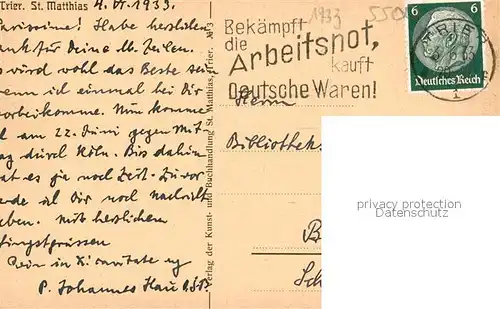 Trier. St. Matthias 4. VI. 1933.
Carissime! Habe herzlichen
Dank für Deine lb. Zeilen.
Es wird wohl das Beste sein
wenn ich einmal bei Dir
vorbeikomme. Nun komme
am 22. Juni gegen Mit
tag durch Köln. Bis dahin
hat es ja noch Zeit. Zuvor
werde ich Dir noch Nachricht
geben. Mit herzlichen
Pfingstgrüssen
Dein in
P. Johannes
Verlag der Kunst- und Buchhandlung St. Matthias, Trier. № 3
1933
Bekämpft
die
Arbeitsnot,
kauft
Deutsche Waren!
6 6
Deutsches Reich
TRIER
1
Herrn
Bibliothek
privacy protection
Datenschutz